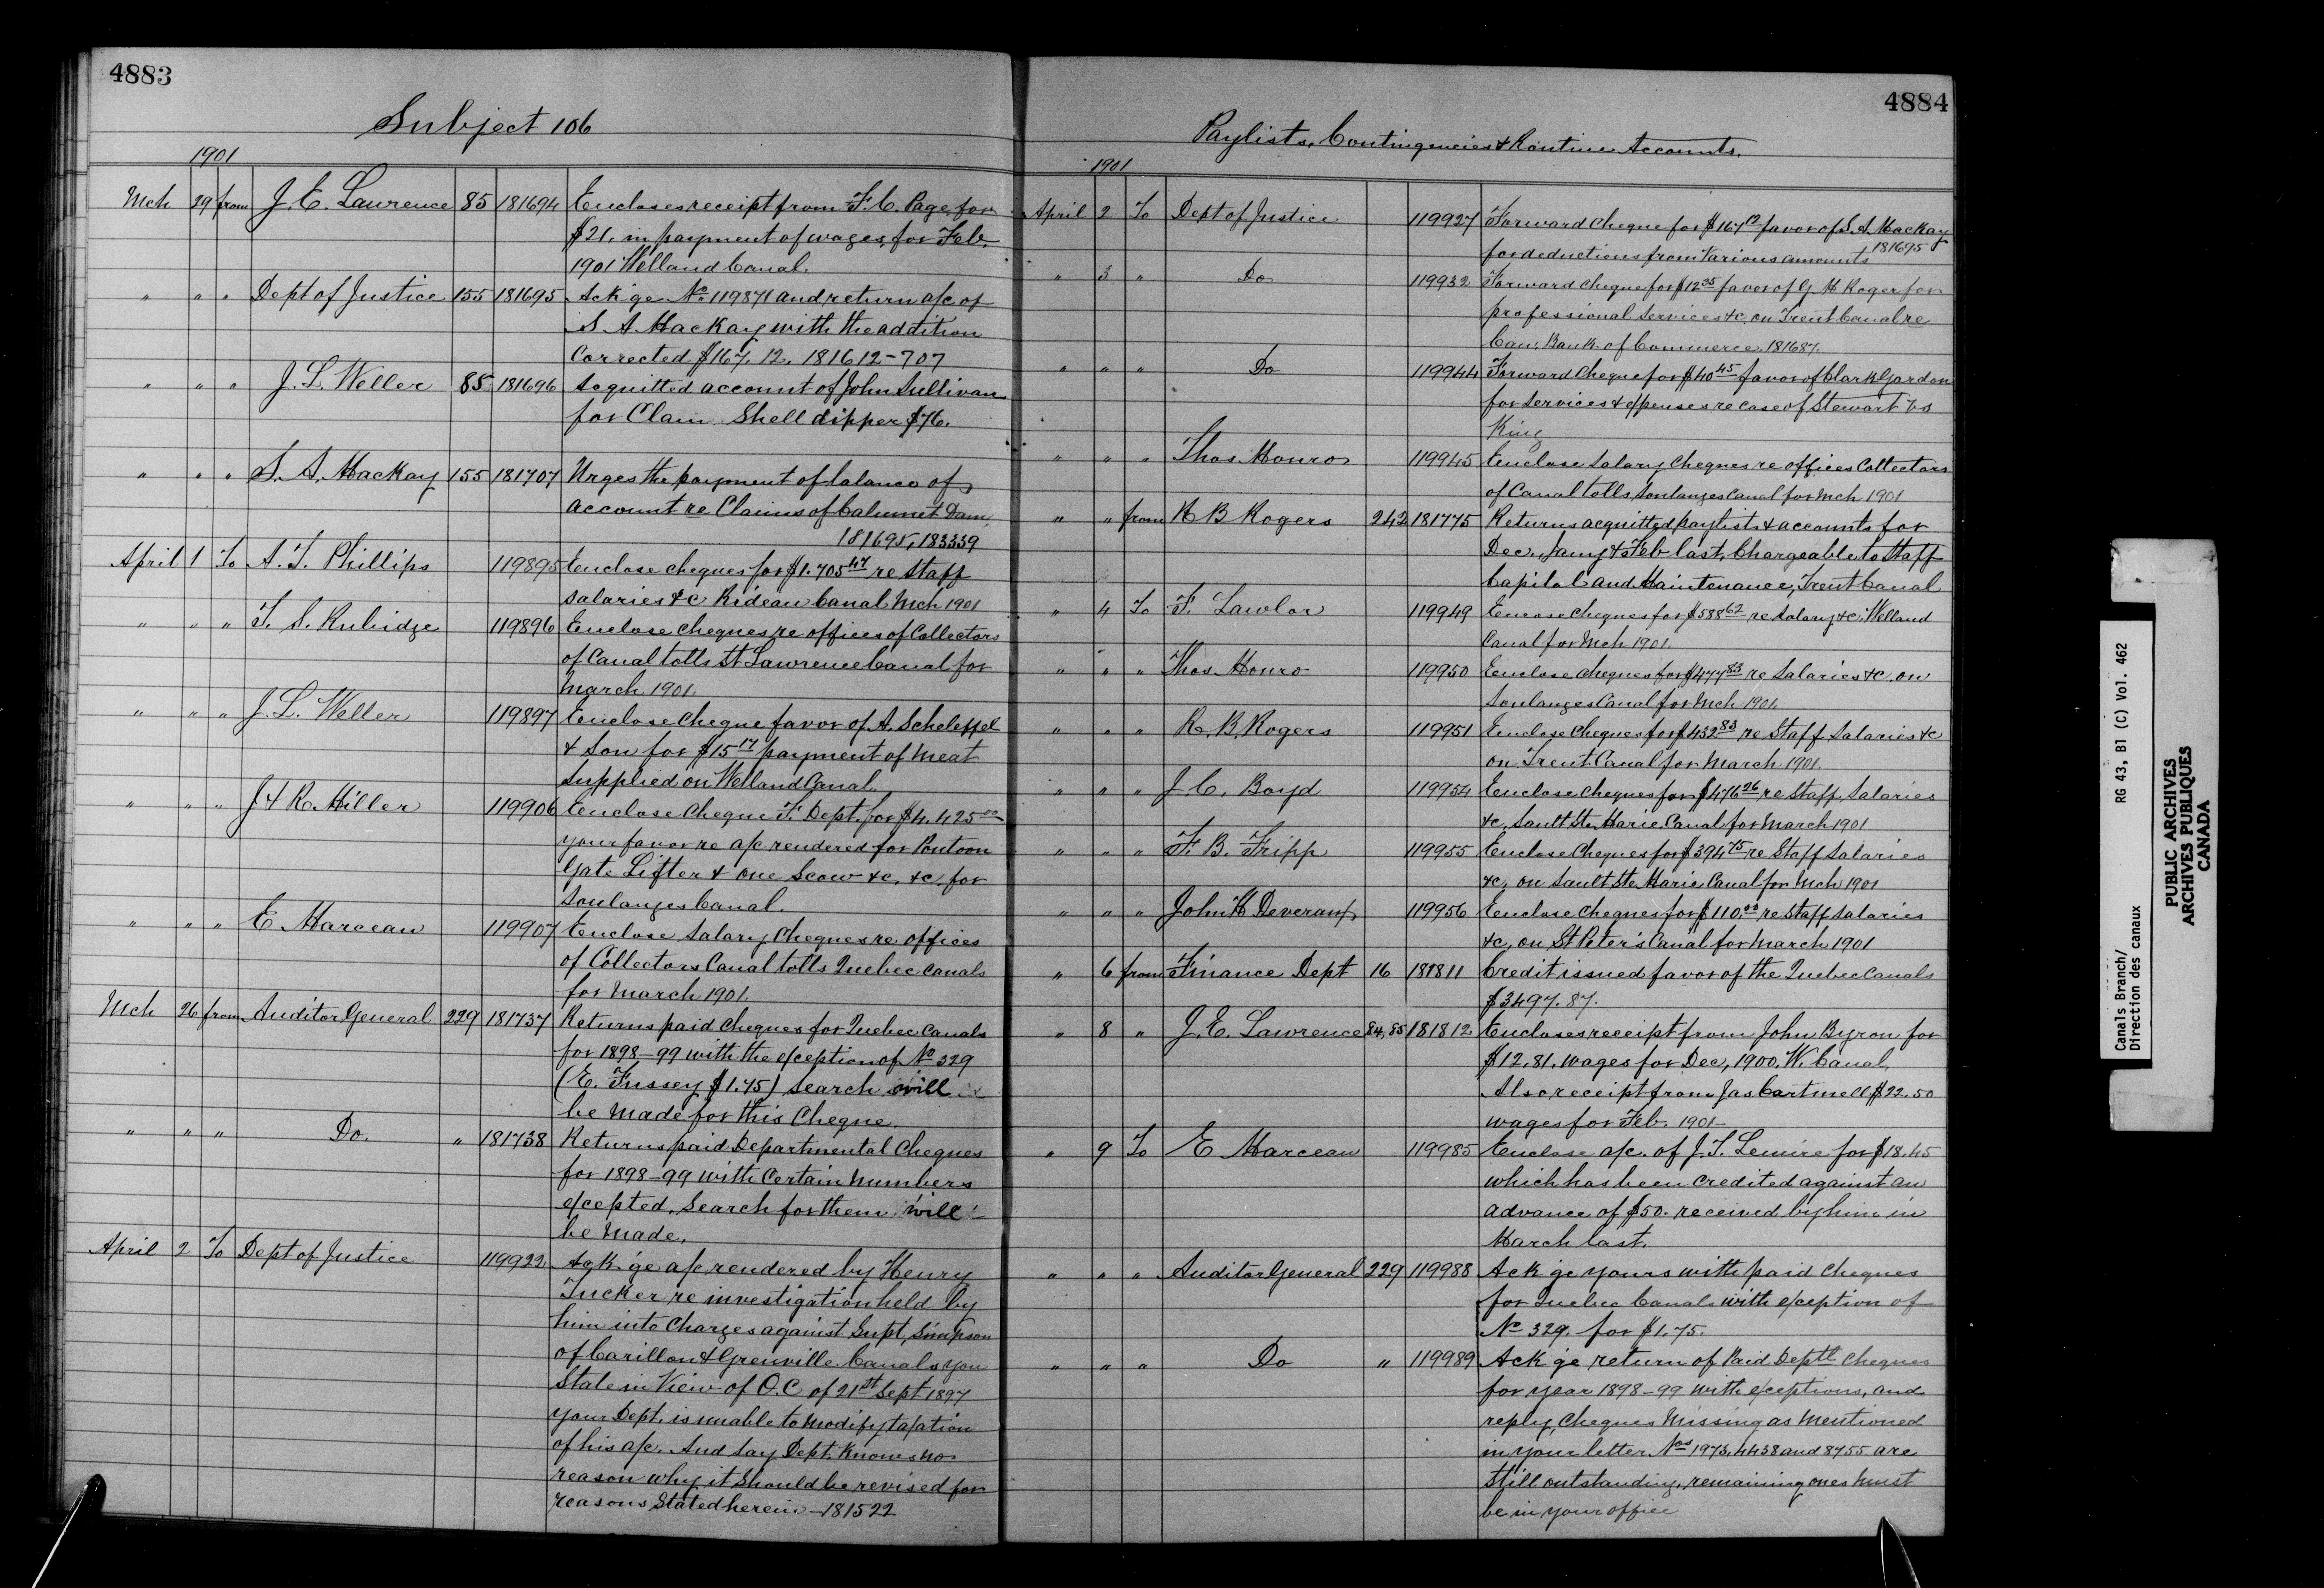 4883
Subject 106
1901
Mch 29 from J. E. Lawrence 85 181694 Encloses receipt from F. C. Page, for
$21. in payment of wages, for Feb.
1901 Welland Canal.
" " " Dept of Justice 155 181695 Ack'ge No 119871 and return a/c of
S. A. MacKay with the addition
Corrected $167.12. 181612-707
" " " J. L. Weller 85 181696 Acquitted account of John Sullivan
for Clam Shell dipper $76.
" " " S. A. MacKay 155 181707 Urges the payment of balance of
account re Claims of Calumet Dam
181695, 183339
April 1 To A. T. Phillips 119895 Enclose cheques for $1.705 47 re Staff
Salaries &c Rideau Canal Mch 1901
" " " T. S. Rubidge 119896 Enclose cheques re offices of Collectors
of Canal tolls St Lawrence Canal for
March 1901.
" " " J. L. Weller 119897 Enclose cheque favor of A. Scheleffel
& Son for $15 17 payment of meat
Supplied on Welland Canal.
" " " J & R Miller 119906 Enclose Cheque F. Dept. for $4.425 00
your favor re a/c rendered for Pontoon
Gate Lifter & one Scow &c, &c, for
Soulanges Canal.
" " " E Marceau 119907 Enclose Salary Cheques re offices
of Collectors Canal tolls Quebec Canals
for March 1901.
Mch 26 from Auditor General 229 181737 Returns paid cheques for Quebec Canals
for 1898-99 with the exception of No 329
(E. Fussey $1.75) Search will
be made for this Cheque.
" " " Do. " 181738 Returns paid Departmental Cheques
for 1898-99 with Certain numbers
excepted, Search for them will
be made.
April 2 To Dept of Justice 119922 Ack'ge a/c rendered by Henry
Tucker re investigation held by
him into Charges against Supt, Simpson
of Carillon & Grenville Canals you
State in View of O.C of 21st Sept 1897
your Dept. is unable to modify taxation
of his a/c. And say Dept. Knows no
reason why it should be revised for
reasons Stated herein - 181522
4884
Paylists, Contingencies & Routine Accounts.
1901
April 2 To Dept of Justice 119927 Forward Cheque for $167 12 favor of S. A. MacKay
for deductions from Various amounts 181695
" 3 " Do 119932 Forward Cheque for $12 35 favor of G M Roger for
professional Services &c, on Trent Canal re
Can. Bank of Commerce. 181687.
" " " Do 119944 Forward Cheque for $40 45 favor of Clark Gordon
for Services & expenses re case of Stewart vs
King
" " " Thos. Monro 119945 Enclose Salary Cheques re offices Collectors
of Canal tolls, Soulanges Canal for Mch 1901
" " from R B Rogers 242 181775 Returns acquitted paylists & accounts for
Dec., Jany & Feb last, Chargeable to Staff
Capital and Maintenance, Trent Canal
" 4 To F. Lawlor 119949 Enclose cheques for $588 62 re Salary &c. Welland
Canal for Mch 1901.
" " " Thos. Monro 119950 Enclose cheques for $477 83 re Salaries &c. on
Soulanges Canal for Mch 1901.
" " " R. B. Rogers 119951 Enclose Cheques for $432 83 re Staff Salaries &c
on Trent Canal for March 1901.
" " " J. C. Boyd 119954 Enclose Cheques for $476 26 re Staff, Salaries
&c. Sault Ste Marie Canal for March 1901
" " " F. B. Fripp 119955 Enclose Cheques for $394 75 re Staff Salaries
&c, on Sault Ste Marie Canal for Mch 1901
" " " John H Deveraux 119956 Enclose Cheques for $110.00 re Staff Salaries
&c, on St Peter's Canal for March 1901
" 6 from Finance Dept 16 181811 Credit issued favor of the Quebec Canals
$3497.87.
" 8 " J. E. Lawrence 84,85 181812 Encloses receipt from John Byron for
$12,81, wages for Dec, 1900, W. Canal.
Also receipt from Jas Cartmell $22.50
wages for Feb. 1901-
" 9 To E Marceau 119985 Enclose a/c. of J. T. Lemire for $18.45
which has been Credited against an
advance of $50. received by him in
March last.
" " " Auditor General 229 119988 Ack'ge yours with paid cheques
for Quebec Canals with exception of
No 329. for $1.75.
" " " Do " 119989 Ack'ge return of Paid Deptl Cheques
for year 1898-99 with exceptions, and
reply, Cheques Missing as Mentioned
in your letter Nos 1973, 4438 and 8755 are
Still outstanding, remaining ones must
be in your office
Canals Branch/ RG 43, B1 (C) Vol. 462
Direction des canaux
PUBLIC ARCHIVES
ARCHIVES PUBLIQUES
CANADA